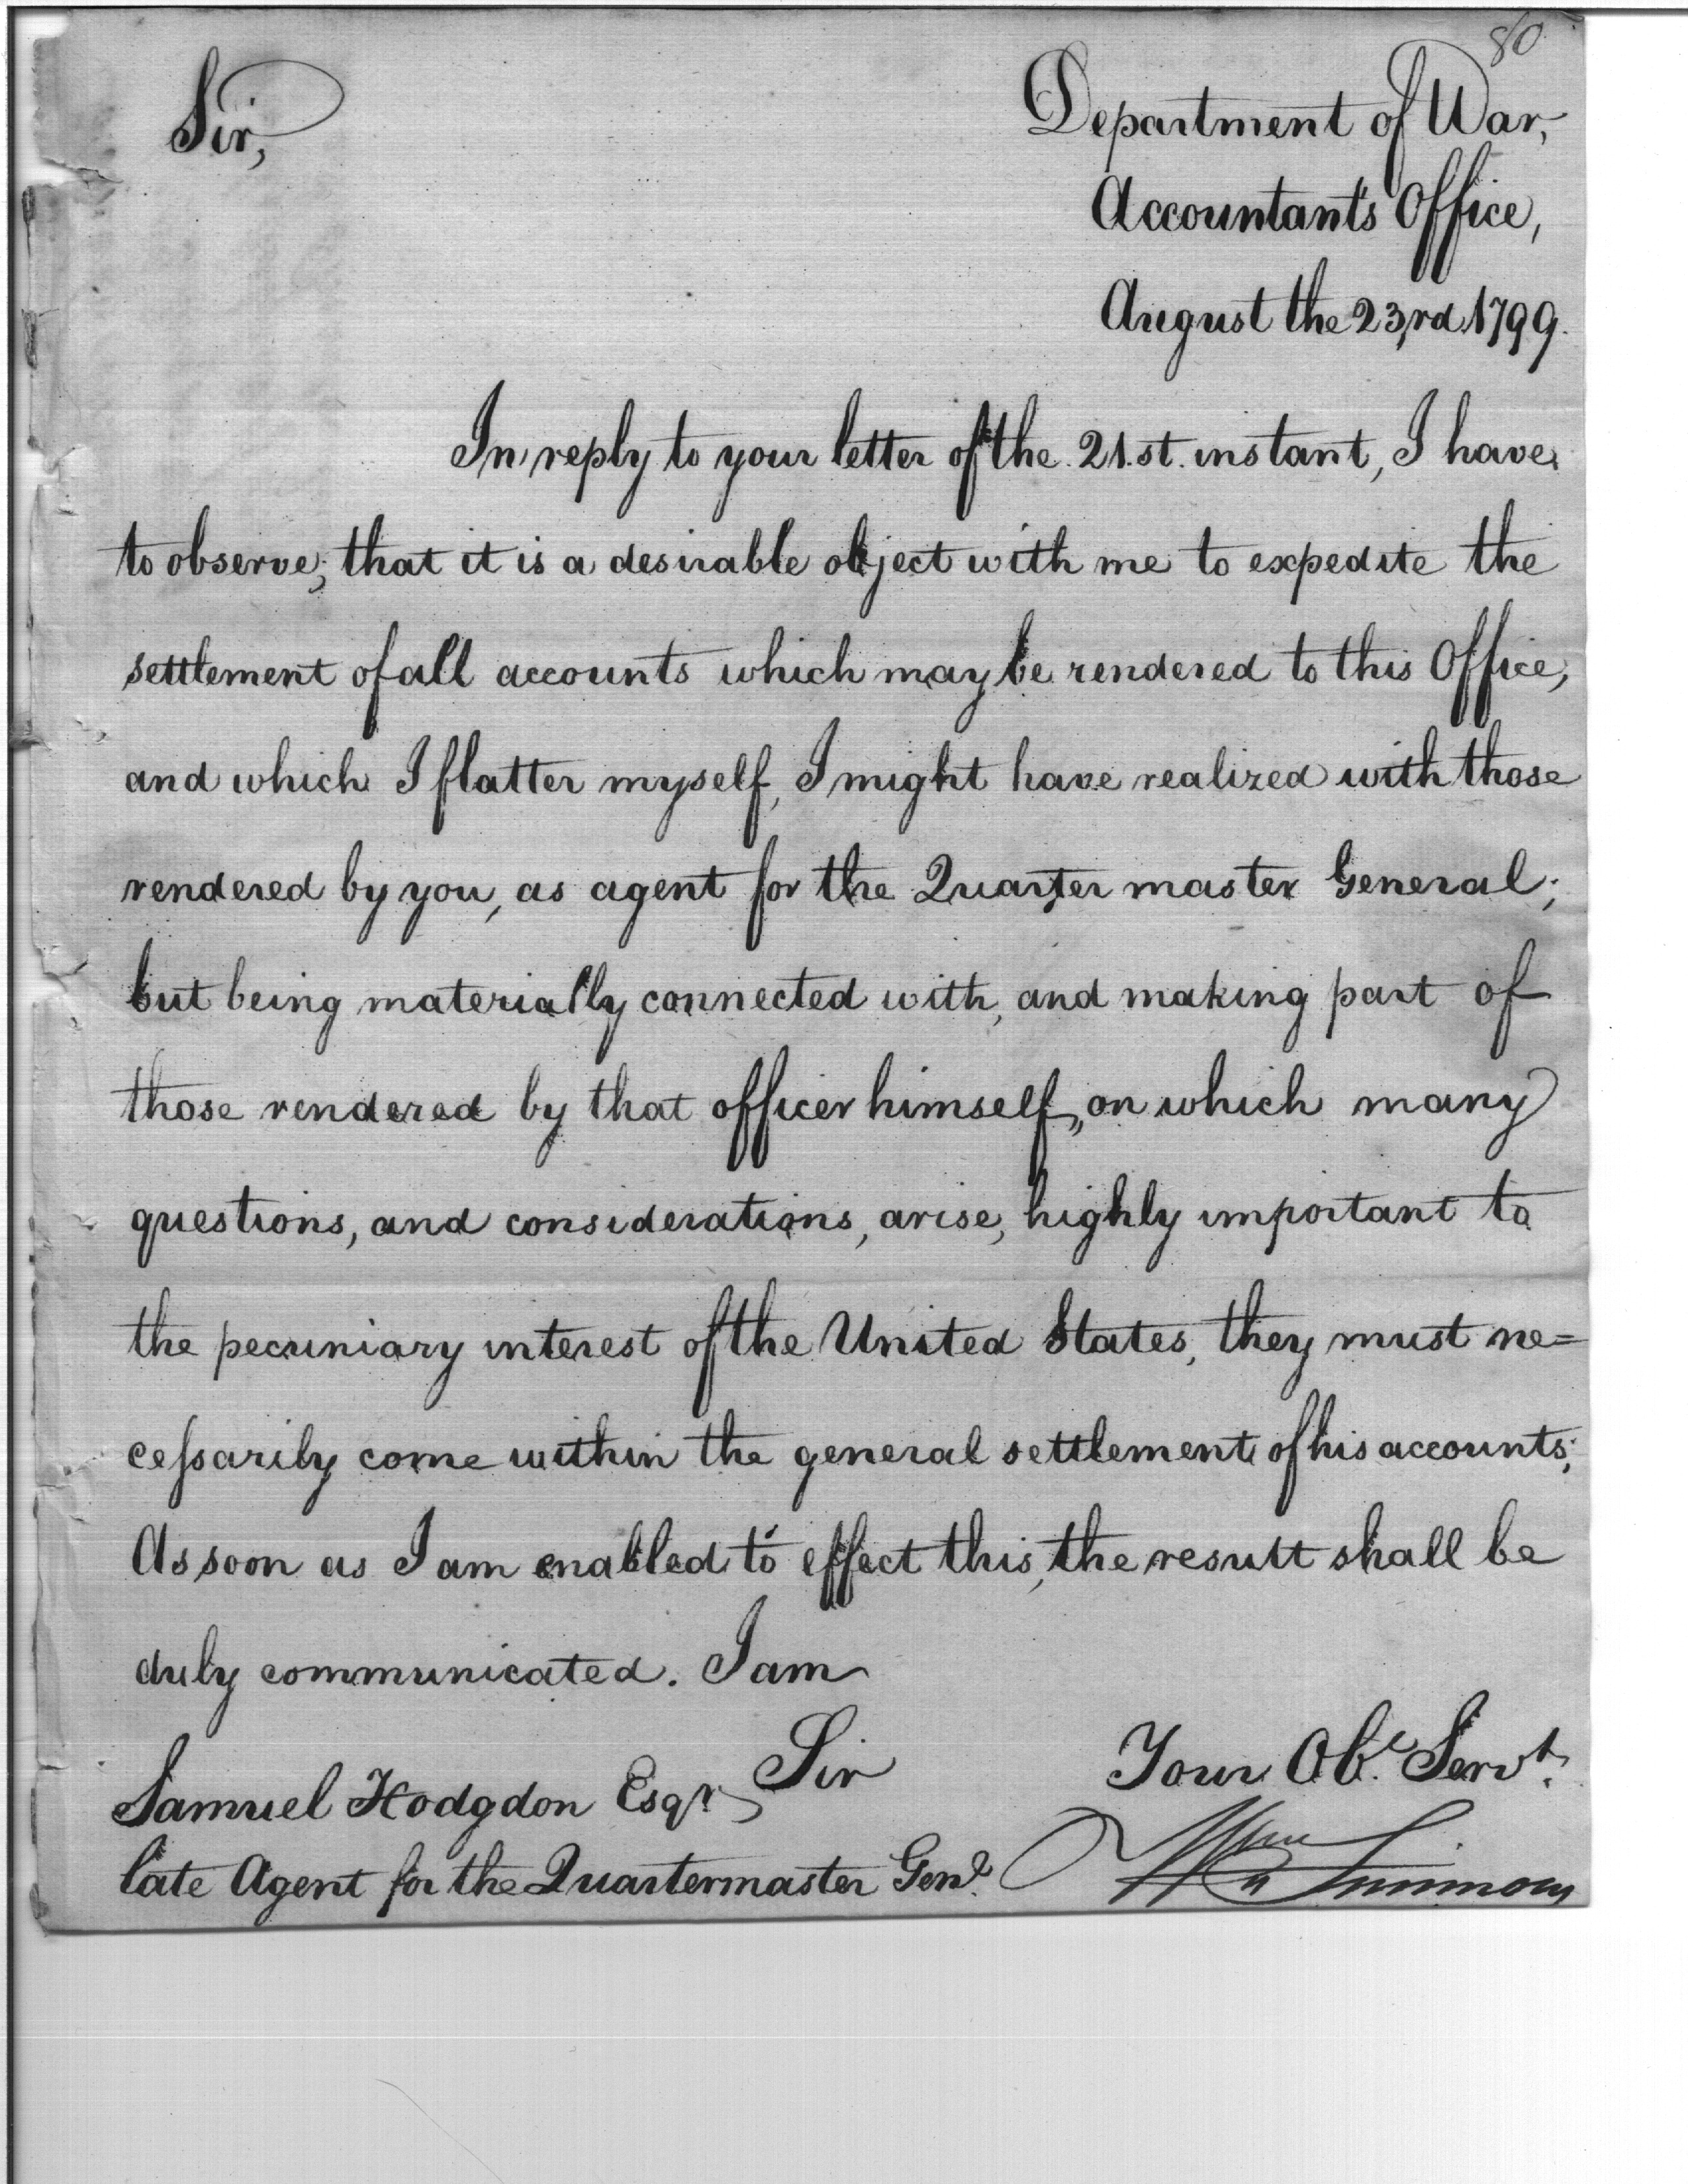 80
Sir,
Department of War,
Accountant's Office,
August the 23,rd 1799.
In reply to your letter of the 21.st. instant, I have
to observe, that it is a desirable object with me to expedite the
settlement of all accounts which may be rendered to this Office,
and which I flatter myself, I might have realized with those
rendered by you, as agent for the Quarter master General;
but being materially connected with, and making part of
those rendered by that officer himself, on which many
questions, and considerations, arise, highly important to
the pecuniary interest of the United States, they must ne=
ceſsarily come within the general settlement of his accounts;
As soon as I am enabled to effect this, the result shall be
duly communicated. I am
Sir
Your Obt. Servt.
Samuel Hodgdon Esqr
late Agent for the Quartermaster Genl.
Wm Simmons